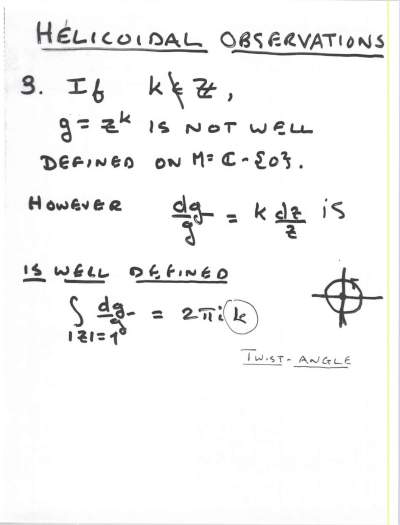 HELICOIDAL OBSERVATIONS
3. If k ∉ ℤ,
g = z^k IS NOT WELL
DEFINED ON M = ℂ - {0}.
HOWEVER dg/g = k dz/z is
IS WELL DEFINED
∫_{|z|=1} dg/g = 2πi k
TWIST-ANGLE